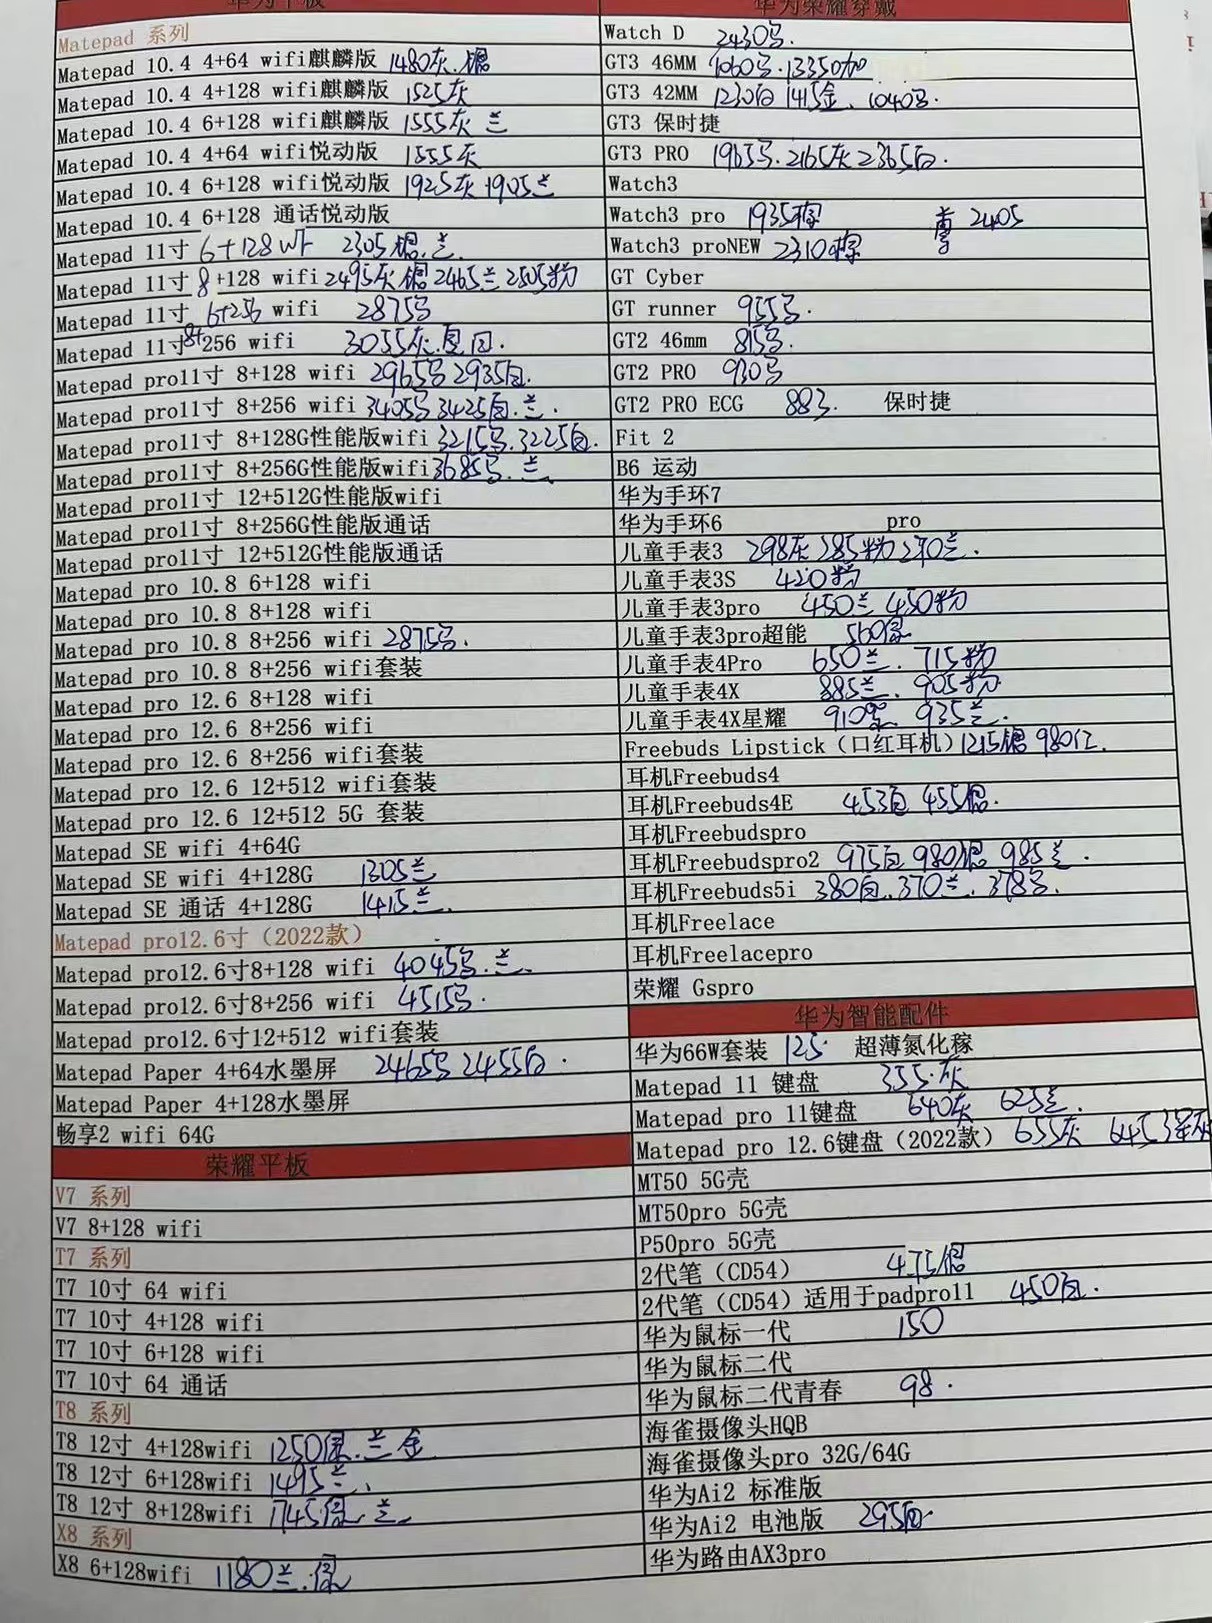 华为平板
Matepad 系列
Matepad 10.4 4+64 wifi麒麟版 1480灰.银
Matepad 10.4 4+128 wifi麒麟版 1525灰
Matepad 10.4 6+128 wifi麒麟版 1555灰 兰
Matepad 10.4 4+64 wifi悦动版 1555灰
Matepad 10.4 6+128 wifi悦动版 1925灰 1905兰
Matepad 10.4 6+128 通话悦动版
Matepad 11寸 6+128 wifi 2305银.兰
Matepad 11寸 8+128 wifi 2495灰 银 2465兰 2505粉
Matepad 11寸 6+256 wifi 2875
Matepad 11寸 8+256 wifi 3055灰
Matepad pro11寸 8+128 wifi 2965 2935白.
Matepad pro11寸 8+256 wifi 3405 3425白.兰.
Matepad pro11寸 8+128G性能版wifi 3215.3225白.
Matepad pro11寸 8+256G性能版wifi 3685.兰
Matepad pro11寸 12+512G性能版wifi
Matepad pro11寸 8+256G性能版通话
Matepad pro11寸 12+512G性能版通话
Matepad pro 10.8 6+128 wifi
Matepad pro 10.8 8+128 wifi
Matepad pro 10.8 8+256 wifi 2875
Matepad pro 10.8 8+256 wifi套装
Matepad pro 12.6 8+128 wifi
Matepad pro 12.6 8+256 wifi
Matepad pro 12.6 8+256 wifi套装
Matepad pro 12.6 12+512 wifi套装
Matepad pro 12.6 12+512 5G 套装
Matepad SE wifi 4+64G
Matepad SE wifi 4+128G 1305兰
Matepad SE 通话 4+128G 1415兰.
Matepad pro12.6寸（2022款）
Matepad pro12.6寸8+128 wifi 4045.兰.
Matepad pro12.6寸8+256 wifi 4515
Matepad pro12.6寸12+512 wifi套装
Matepad Paper 4+64水墨屏 2465 2455白.
Matepad Paper 4+128水墨屏
畅享2 wifi 64G
荣耀平板
V7 系列
V7 8+128 wifi
T7 系列
T7 10寸 64 wifi
T7 10寸 4+128 wifi
T7 10寸 6+128 wifi
T7 10寸 64 通话
T8 系列
T8 12寸 4+128wifi 1250 兰 金
T8 12寸 6+128wifi 1495兰.
T8 12寸 8+128wifi 1745 兰
X8 系列
X8 6+128wifi 1180兰
华为荣耀穿戴
Watch D 2430
GT3 46MM 1060.1335
GT3 42MM 1230白 1415金. 1040
GT3 保时捷
GT3 PRO 1965.2165灰 2365白.
Watch3
Watch3 pro 1935棕 2405
Watch3 proNEW 2310棕
GT Cyber
GT runner 955
GT2 46mm 815
GT2 PRO 930
GT2 PRO ECG 883. 保时捷
Fit 2
B6 运动
华为手环7
华为手环6 pro
儿童手表3 298灰 285粉 290兰.
儿童手表3S 420粉
儿童手表3pro 450兰 450粉
儿童手表3pro超能 560
儿童手表4Pro 650兰. 715粉
儿童手表4X 885兰. 905粉
儿童手表4X星耀 910 935兰.
Freebuds Lipstick（口红耳机）1215银 980红.
耳机Freebuds4
耳机Freebuds4E 453白 455银.
耳机Freebudspro
耳机Freebudspro2 975白 980银 985兰.
耳机Freebuds5i 380白.370兰.378
耳机Freelace
耳机Freelacepro
荣耀 Gspro
华为智能配件
华为66W套装 125 超薄氮化稼
Matepad 11 键盘 355.灰
Matepad pro 11键盘 640灰 625兰.
Matepad pro 12.6键盘（2022款） 655灰 645深灰
MT50 5G壳
MT50pro 5G壳
P50pro 5G壳
2代笔（CD54） 475银
2代笔（CD54）适用于padpro11 450白.
华为鼠标一代 150
华为鼠标二代
华为鼠标二代青春 98.
海雀摄像头HQB
海雀摄像头pro 32G/64G
华为Ai2 标准版
华为Ai2 电池版 295白
华为路由AX3pro